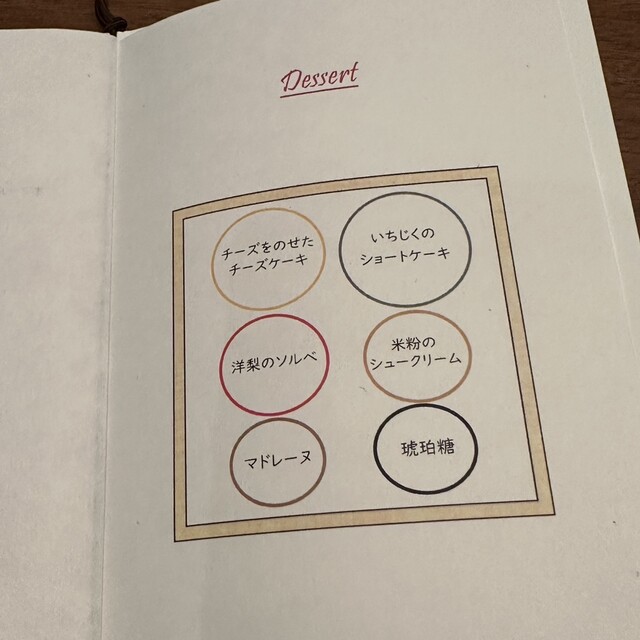 Dessert
チーズをのせた
チーズケーキ
いちじくの
ショートケーキ
洋梨のソルベ
米粉の
シュークリーム
マドレーヌ
琥珀糖